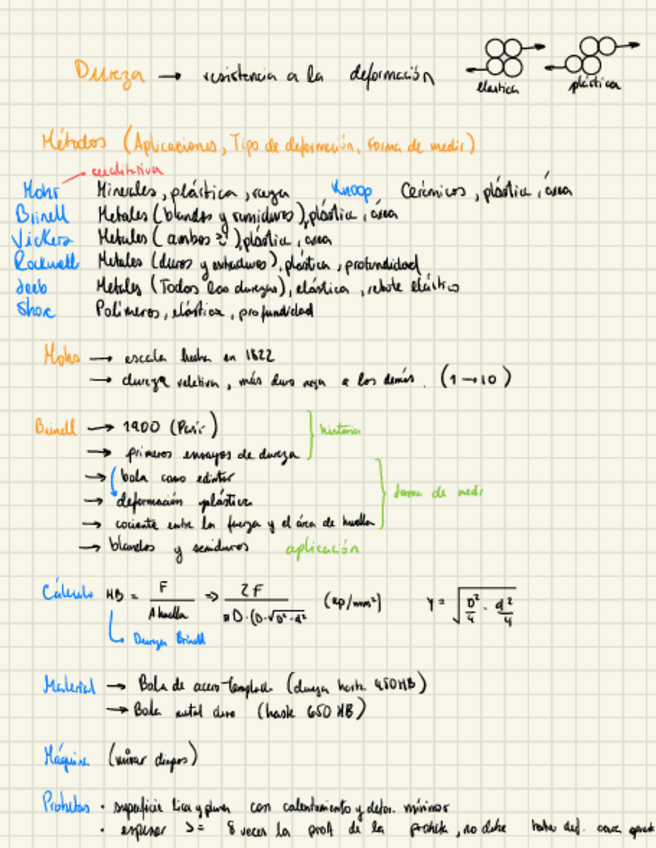 Dureza → resistencia a la deformación
elástica plástica
Métodos (Aplicaciones, Tipo de deformación, Forma de medir)
cualitativa
Mohs Minerales, plástica, raya Knoop Cerámicos, plástica, área
Brinell Metales (blandos y semiduros), plástica, área
Vickers Metales (ambos ), plástica, área
Rockwell Metales (duros y extraduros), plástica, profundidad
Leeb Metales (Todas las durezas), elástica, rebote elástico
Shore Polímeros, elástica, profundidad
Mohs → escala hecha en 1822
→ dureza relativa, más duro raya a los demás. (1→10)
Brinell → 1900 (París)
historia
→ primeros ensayos de dureza
→ bola como
→ deformación plástica
forma de medir
→ cociente entre la fuerza y el área de huella
→ blandos y semiduros aplicación
Cálculo HB = F / A huella ⇒ 2F / πD·(D-√D²-d² (kp/mm²) Y = √D²/4 - d²/4
Dureza Brinell
Material → Bola de acero templado (dureza hasta 450HB)
→ Bola metal duro (hasta 650 HB)
Máquina (mirar diapos)
Probetas · superficie lisa y plana con calentamiento y defor. mínimos
· espesor >= 8 veces la prof de la , no debe haber def. cara